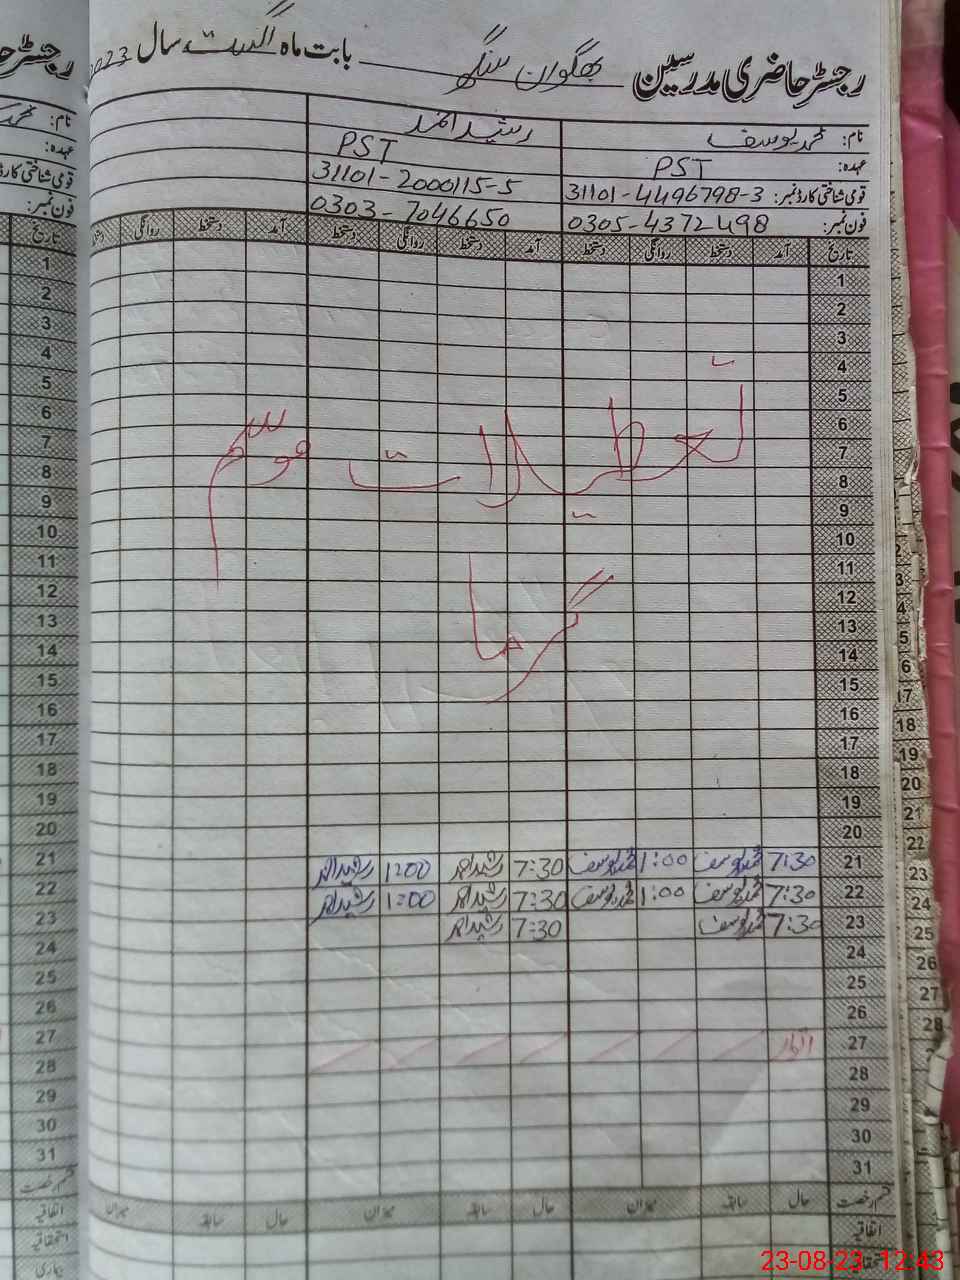 رجسٹر حاضری مدرسین بھگوان سنگھ بابت ماہ اگست سال 2023
نام: محمد یوسف رشید احمد
عہدہ: PST PST
قومی شناختی کارڈ نمبر: 31101-4496798-3 31101-2000115-5
فون نمبر: 0305-4372498 0303-7046650
تاریخ آمد دستخط روانگی دستخط آمد دستخط روانگی دستخط آمد دستخط روانگی
1
2
3
4
5
6
7
8
9
10
11
12
13
14
15
16
17
18
19
20
تعطیلات موسم
گرما
21 7:30 محمد یوسف 1:00 محمد یوسف 7:30 رشید احمد 1:00 رشید احمد
22 7:30 محمد یوسف 1:00 محمد یوسف 7:30 رشید احمد 1:00 رشید احمد
23 7:30 محمد یوسف 7:30 رشید احمد
24
25
26
27 اتوار
28
29
30
31
قسم رخصت حال سابقہ میزان حال سابقہ میزان حال سابقہ میزان
اتفاقیہ
استحقاقیہ
23-08-23 12:43